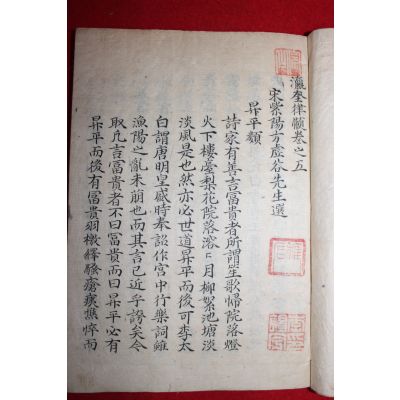 瀛奎律髓卷之五
宋紫陽方虛谷先生選
昇平類
詩家有善言富貴者所謂笙歌歸院落燈
火下樓臺梨花院落溶〻月柳絮池塘淡
淡風是也然亦必世道昇平而後可李太
白謂唐明皇盛時奉詔作宮中行樂詞雖
漁陽之亂未萠也而其言已近乎誇矣今
取凡言富貴者不曰富貴而曰昇平必有
昇平而後有冨貴羽檄繹騷瘡痍憔悴而